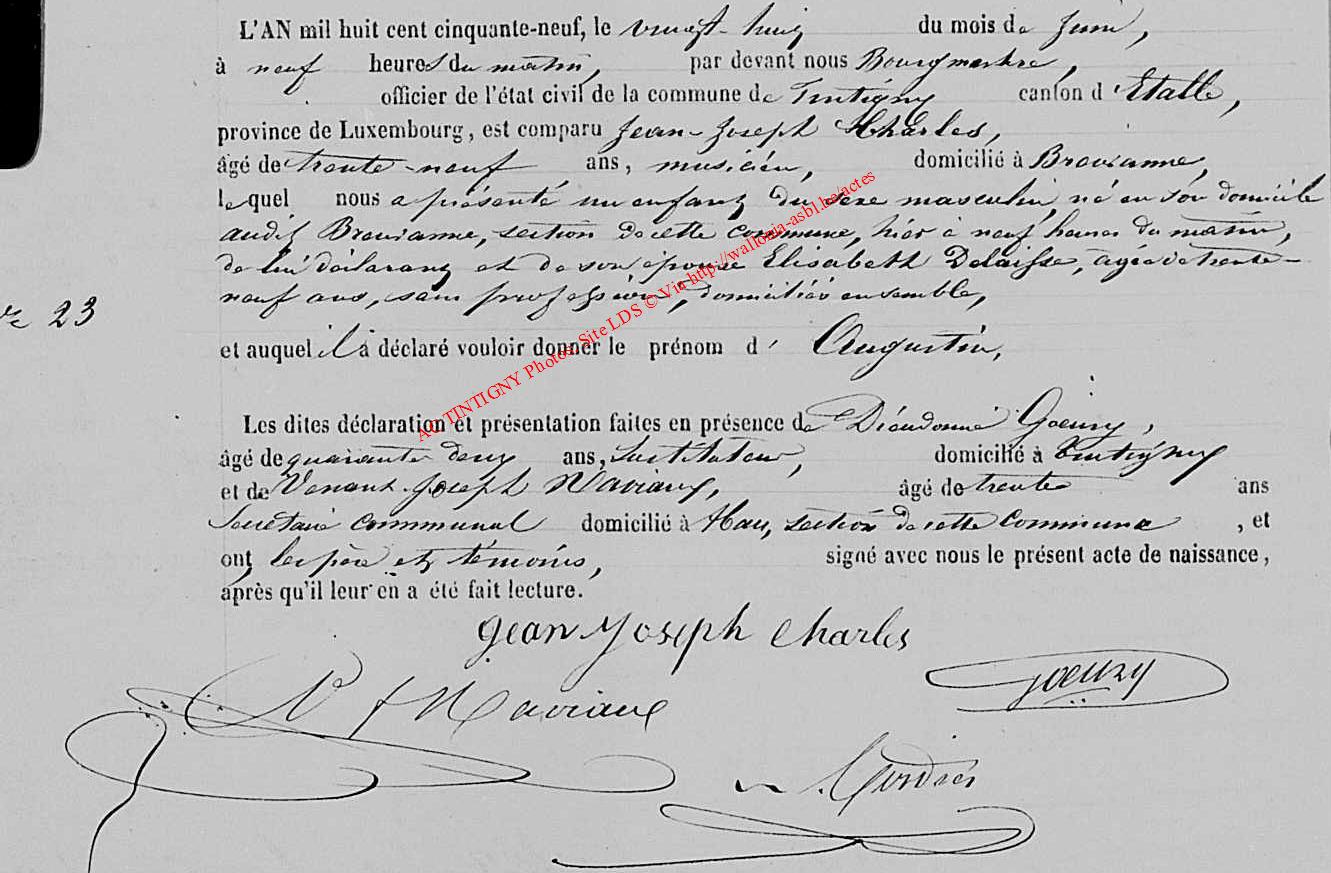 L'AN mil huit cent cinquante-neuf, le vingt-huit du mois de Juin,
à neuf heures du matin, par devant nous Bourgmestre,
officier de l'état civil de la commune de Tintigny canton d'Etalle,
province de Luxembourg, est comparu Jean-Joseph Charles,
âgé de trente-neuf ans, musicien, domicilié à Breuvanne,
lequel nous a présenté un enfant du sexe masculin, né en son domicile
audit Breuvanne, section de cette commune, hier à neuf heures du matin,
de lui déclarant et de son épouse Elisabeth Delaisse, agée de trente-
neuf ans, sans profession, domiciliés ensemble,
23
et auquel il a déclaré vouloir donner le prénom d' Augustin,
AC TINTIGNY Photos: Site LDS © Via http://wallonia-asbl.be/actes
Les dites déclaration et présentation faites en présence de Dieudonné Goeury,
âgé de quarante deux ans, Instituteur, domicilié à Tintigny
et de Venant Joseph Naviaux, âgé de trente ans
Secrétaire communal domicilié à Han, section de cette commune, et
ont, les père et témoins, signé avec nous le présent acte de naissance,
après qu'il leur en a été fait lecture.
Jean Joseph Charles
Goeury
V J Naviaux